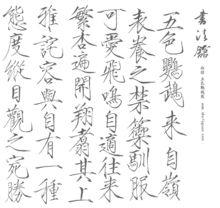 書法
五色鸚鵡來自嶺
表養之禁籞馴服
可愛飛鳴自適往來
繁杏遍開翔翥其上
雅詫容與自有一種
態度縱目觀之宛勝